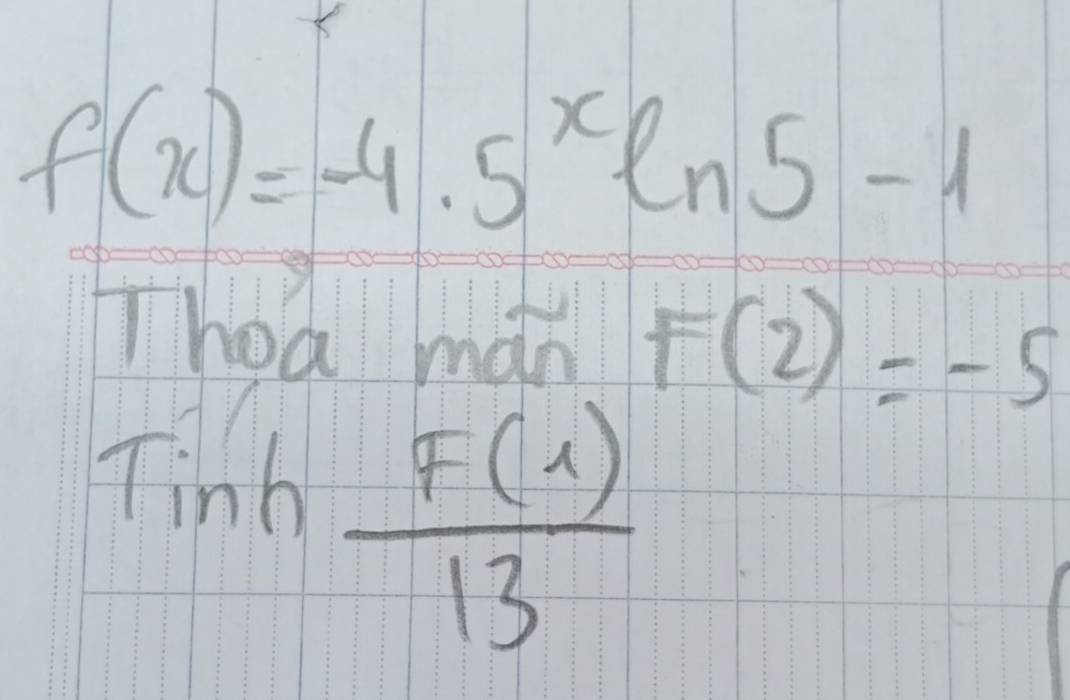 f(x) = -4 . 5^x ln 5 - 1
Thỏa mãn F(2) = - 5
Tính F(1)/13